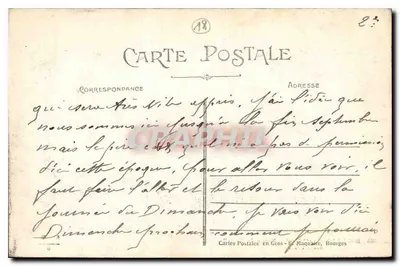 18
2e
CARTE POSTALE
CORRESPONDANCE
ADRESSE
qui sera très vite appris. J'ai l'idée que
nous sommes ici jusqu'à la fin septembre
mais le pire c'est qu'il n'y a pas de permission
d'ici cette époque, pour aller vous voir, il
faut faire l'aller et le retour dans la
journée du Dimanche. Je vais voir d'ici
Dimanche prochain comment je pourrais
Cartes Postales en Gros - Maquaire, Bourges